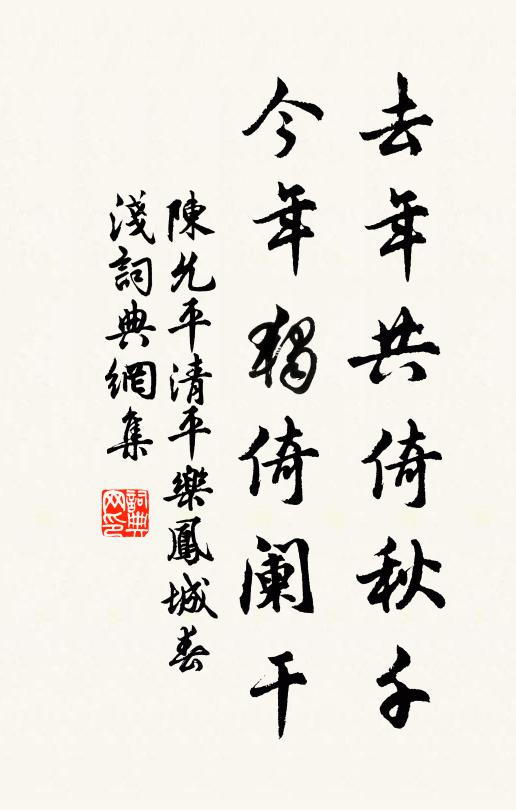 去年共倚秋千
今年独倚阑干
陳允平清平樂鳳城春
淺詞典網集
詞典网印